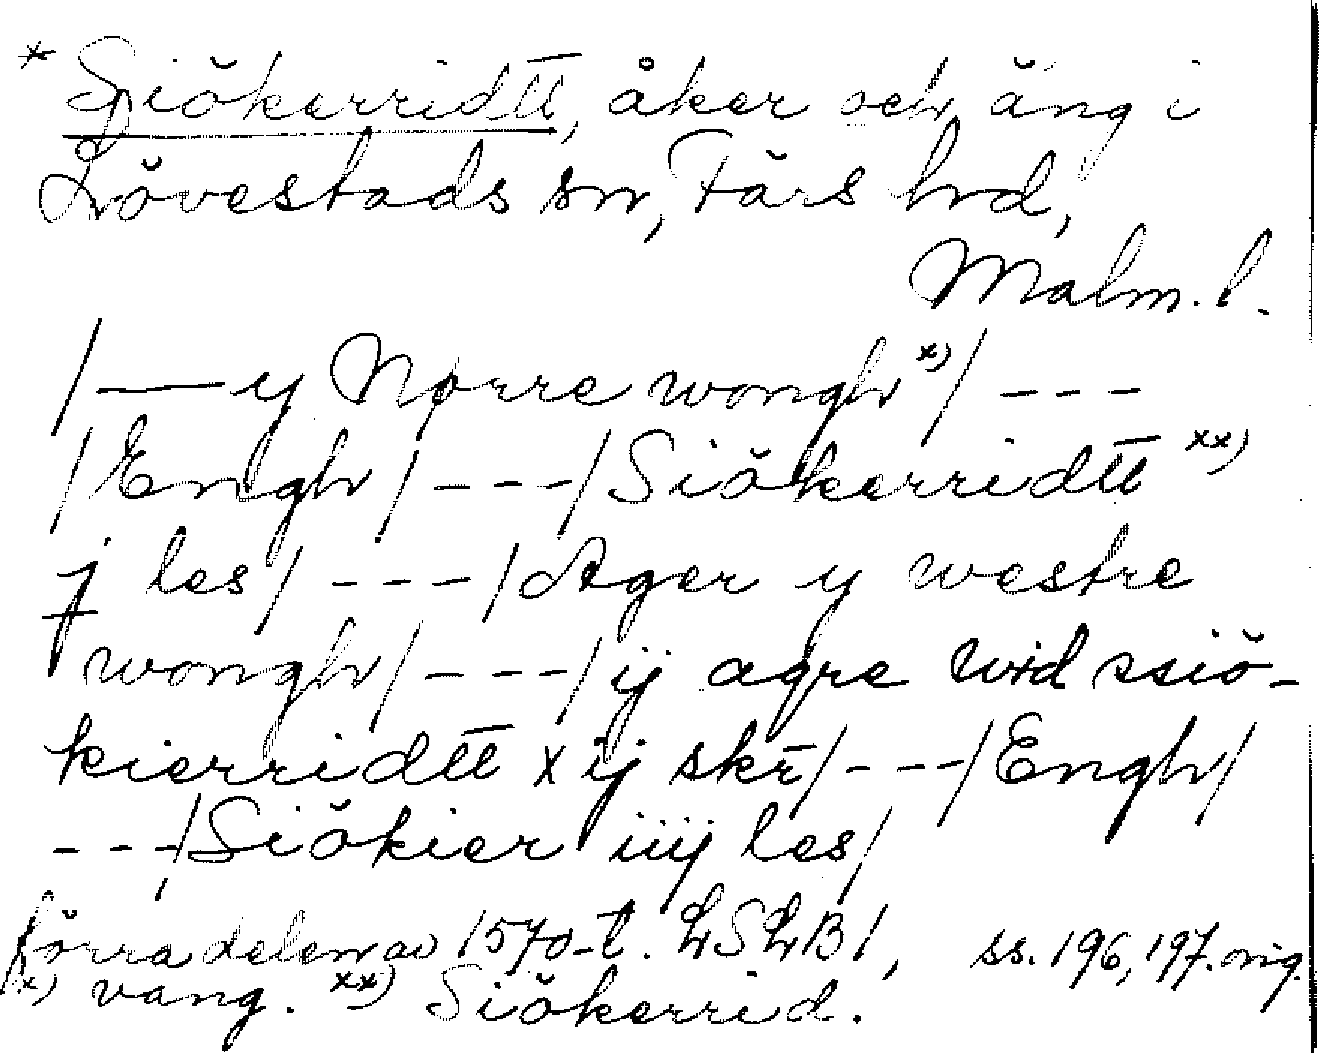 * Siökerridtt, åker och äng i
Lövestads sn, Färs hd,
Malm. l.
/—— y Nørre wongh x)/ ---
/Engh/ ---/Siökerridtt xx)
j les/ ---/Ager y westre
wongh/ ---/ij agre wid ssiö-
kierridtt x ij skr/ ---/Engh/
---/Siökier iiij les/
förra delen av 1570-t. LSLB 1, ss. 196, 197. orig.
x) vang. xx) Siökerrid.